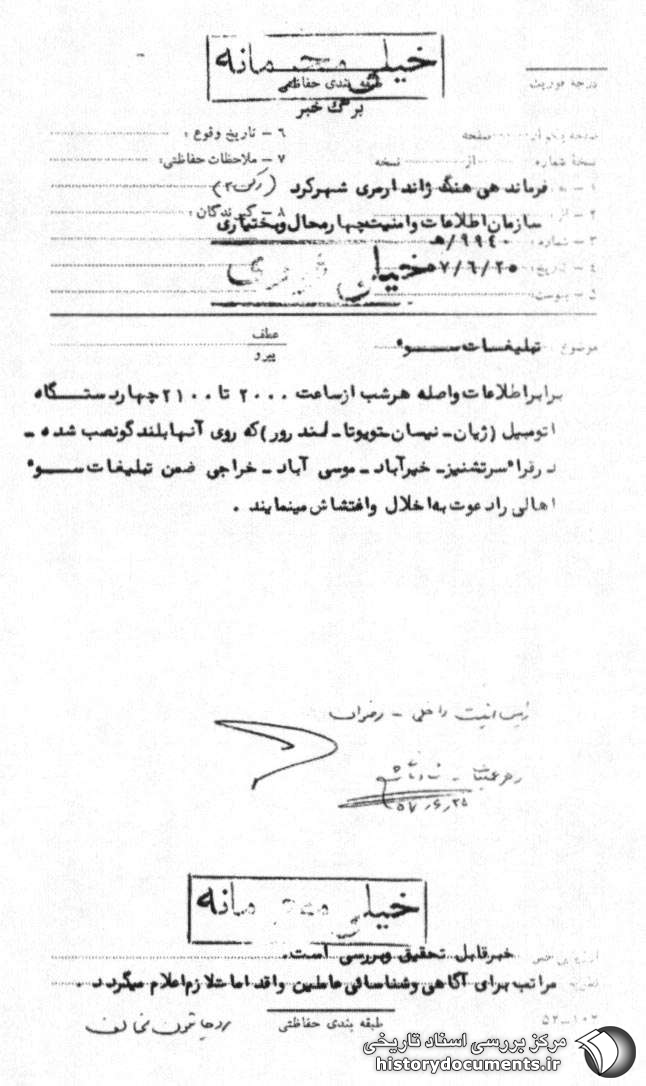 خیلی محرمانه
طبقه بندی حفاظتی
برگ خبر
درجه فوریت
صفحه
۶ - تاریخ وقوع :
نسخهٔ شماره از نسخه
۷ - ملاحظات حفاظتی:
۱ - به : فرماندهی هنگ ژاندارمری شهرکرد (رکن ۲)
۲ - از : سازمان اطلاعات و امنیت چهارمحال و بختیاری
۸ - گیرندگان :
۳ - شماره : ۹۹۴۰/ه
۴ - تاریخ: ۵۷/۶/۲۵
خیلی فوری
۵ - پیوست:
عطف
پیرو
موضوع : تبلیغات سوء
برابر اطلاعات واصله هرشب از ساعت ۲۰۰۰ تا ۲۱۰۰ چهار دستگاه
اتومبیل (ژیان ـ نیسان ـ تویوتا ـ لندرور) که روی آنها بلندگو نصب شده ـ
در قراء سرتشنیز ـ خیرآباد ـ موسی آباد ـ خراجی ضمن تبلیغات سوء
اهالی را دعوت به اخلال و اغتشاش مینمایند .
رئیس امنیت داخلی -
رهبر عملیات -
۵۷/۶/۲۵
خیلی محرمانه
خبر قابل تحقیق و بررسی است.
مراتب برای آگاهی و شناسائی عاملین و اقدامات لازم اعلام میگردد .
طبقه بندی حفاظتی
مرکز بررسی اسناد تاریخی
historydocuments.ir